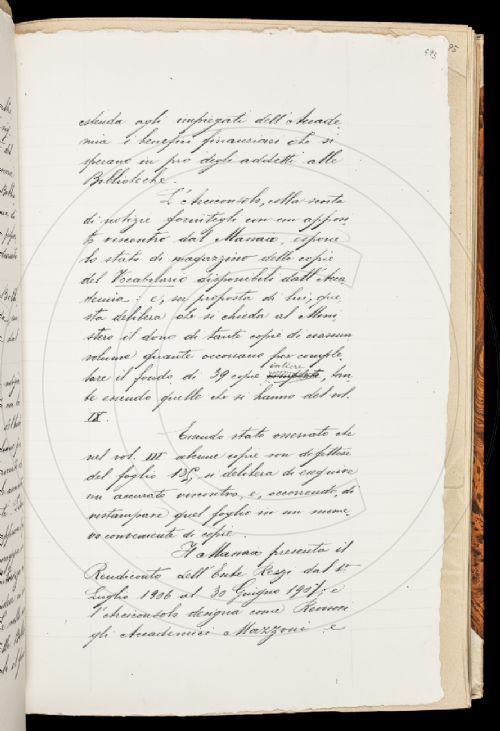 estenda agli impiegati dell'Accade
mia i benefizi finanziari che si
sperano in pro degli addetti alle
Biblioteche.
L'Arciconsolo, colla scorta
di notizie fornitegli con un appun
to riscontro dal Manara, espone
lo stato di magazzino delle copie
del Vocabolario disponibili dall'Acca
demia: e, su proposta di lui, que
sta delibera che si chieda al Mini
stero il dono di tante copie di ciascun
volume quante occorrano per comple
tare il fondo di 39 copie intiere, tan
te essendo quelle che si hanno del vol.
IX.
Essendo stato osservato che
nel vol. III alcune copie son difettose
del foglio 135, si delibera di eseguire
un accurato riscontro, e, occorrendo, di
ristampare quel foglio in un nume
ro conveniente di copie.
Il Manara presenta il
Rendiconto dell'Ente Rezzi dal 1º
Luglio 1906 al 30 Giugno 1907; e
l'Arciconsolo designa come Revisori
gli Accademici Mazzoni e